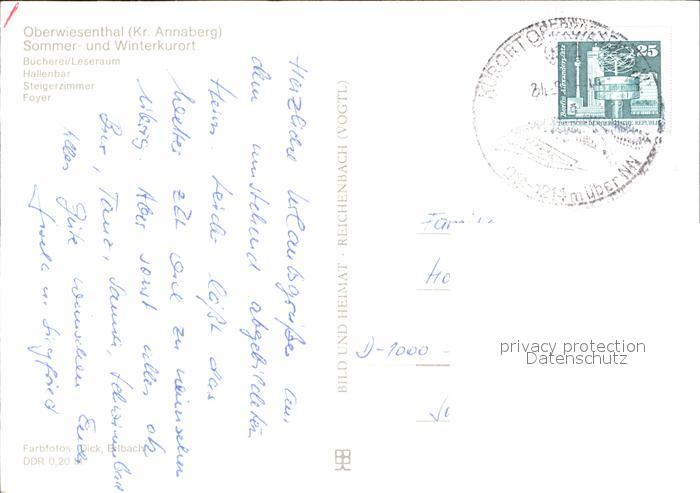 Oberwiesenthal (Kr. Annaberg)
Sommer- und Winterkurort
Bücherei/Leseraum
Hallenbar
Steigerzimmer
Foyer
Herzliche Urlaubsgrüße aus
dem umstehend abgebildeten
Heim. Leider läßt das
Wetter zur Zeit viel zu wünschen
übrig. Aber sonst alles ok
Bar, Tanz, Sauna, Schwimmbad
Alles Gute wünschen Euch
u. Siegfried
Farbfotos (Dick, Erlbach)
DDR 0,20 M
BILD UND HEIMAT · REICHENBACH (VOGTL)
KURORT OBERWIESENTHAL
914-1214 m über NN
25
Berlin, Alexanderplatz
DEUTSCHE DEMOKRATISCHE REPUBLIK
Familie
D-1000 -
privacy protection
Datenschutz